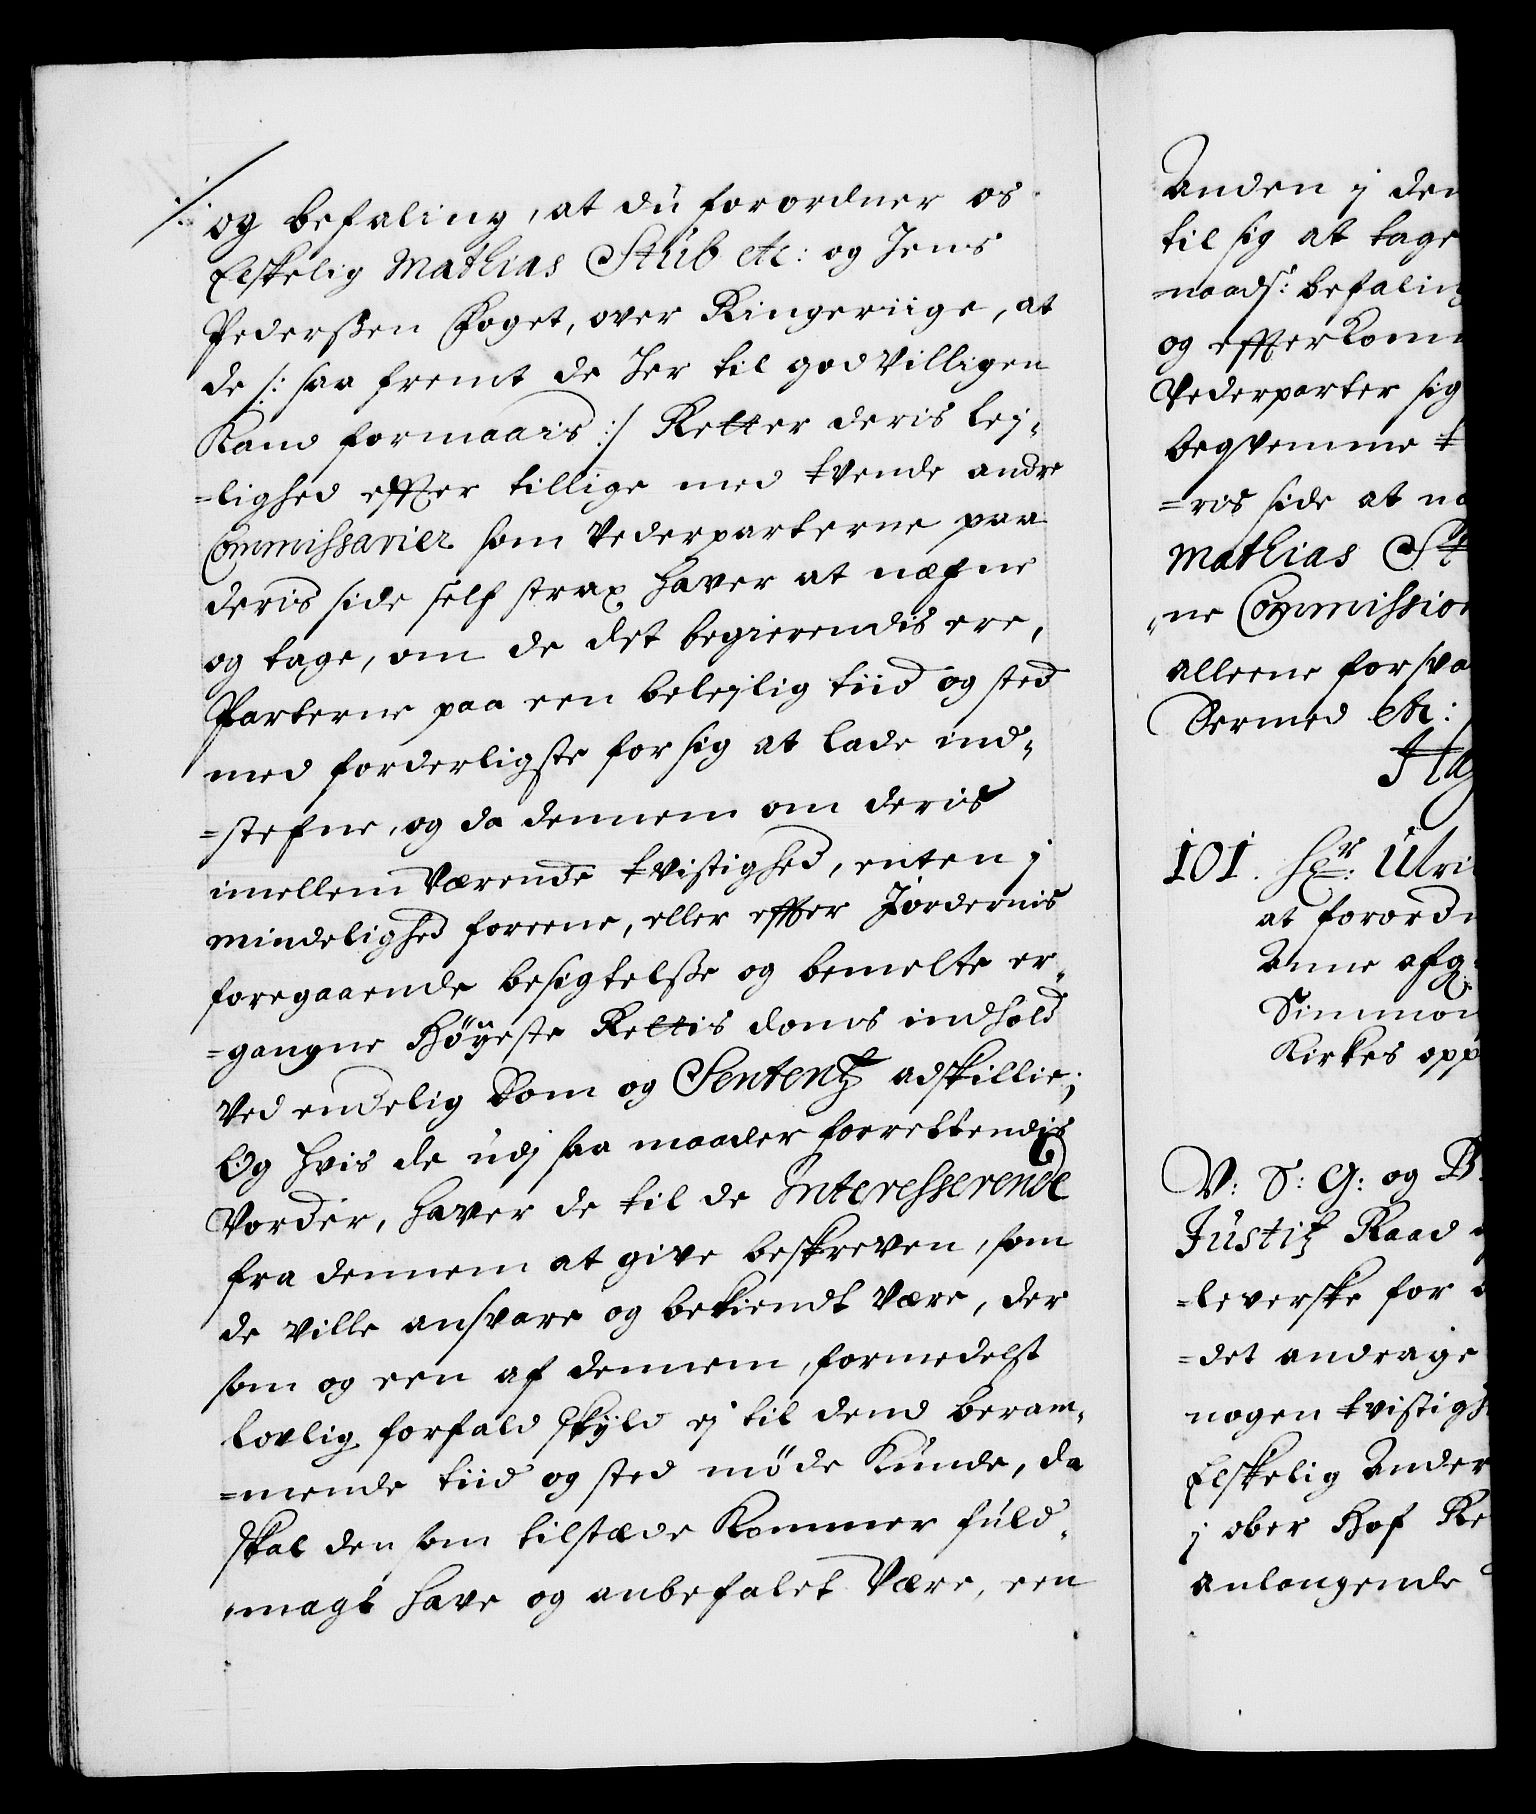 og befaling, at du forordner os
Elskelig Mathias Stub etc: og Jens
Pederssen Foget, over Ringeriige, at
de /: saa fremt de Jer til god villigen
Kand formaais :/ Retter deris lej¬
=lighed effter tillige med tvende andre
Commissarier som Vederparterne paa
deris side self strax haver at næfne
og tage, om de det begierendis ere,
Parterne paa een belejlig tiid og sted
med forderligste for sig at lade ind¬
=stefne, og da dennem om deris
imellem Værende tvistighed, enten j
mindelighed foreene, eller effter Jordernis
foregaaende besigtelsse og bemelte er¬
=gangne Høyeste Rettis doms indhold
Ved endelig Dom og Sententz adskillie;
Og hvis de udj saa maader forrettendis
Vorder, haver de til de Interesserende
fra dennem at give beskreven, som
de ville ansvare og bekiendt Være, der
som og een af dennem, formedelst
lovlig forfald skyld ej til dend beram¬
=mende tiid og sted møde Kunde, da
skal den som tilstæde Kommer fuld¬
magt have og anbefalet Være, een
Anden j den
til sig at tage
=naads: befaling
og effterkom
Vederparter sig
beqvemme t
=ris side at næ
Mathias St
ne Commission
alleene forsva
Dermed etc:
Ha
101. Hr: Ulri
at forordn
Anne afg:
Simmon
Kirkes opp
V: S: G: og B:
Justitz Raad
=leverske for
=det andrage
nogen tvistigh
Elskelig Ander
j ober Hof Re
anlangende